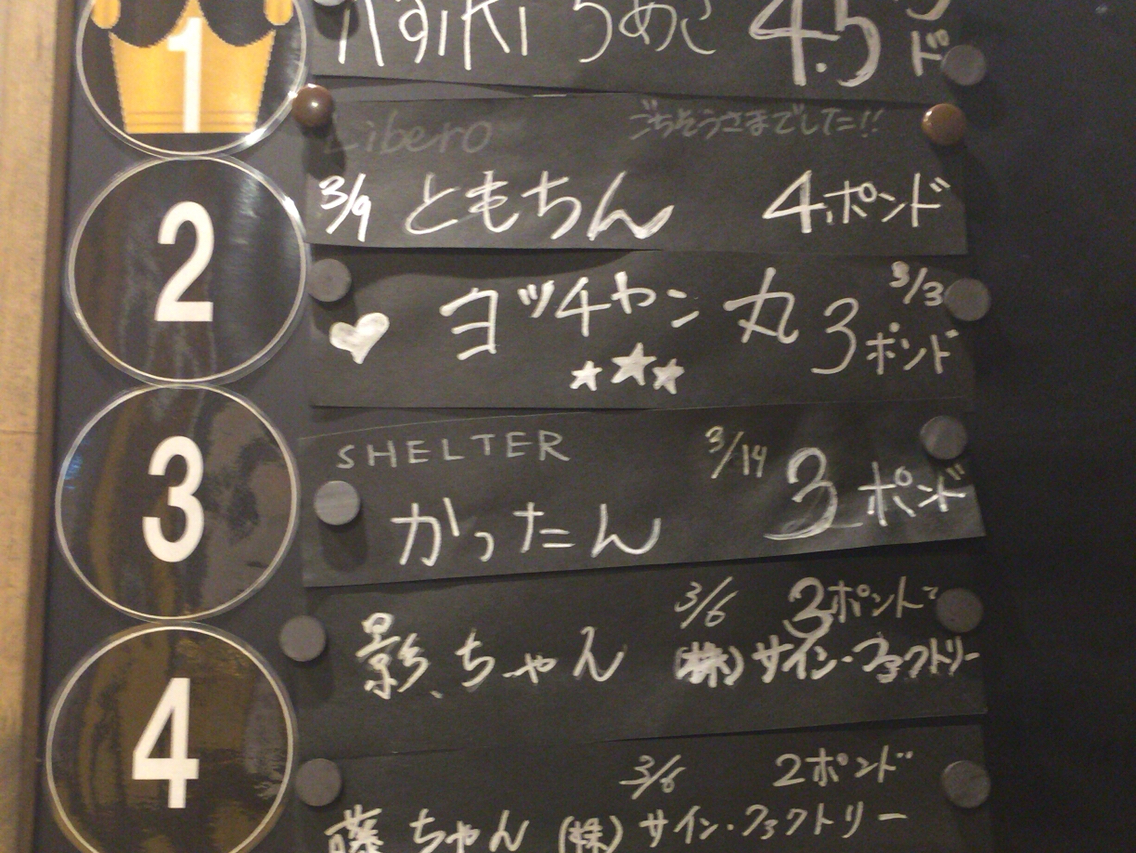 1
4.5
Libero ごちそうさまでした!!
2
3/9 ともちん 4ポンド
ヨッチャン丸 3/3
3ポンド
3
SHELTER 3/14 3ポンド
かったん
3/6 3ポンド
影ちゃん (株)サイン・ファクトリー
4
3/6 2ポンド
藤ちゃん (株)サイン・ファクトリー